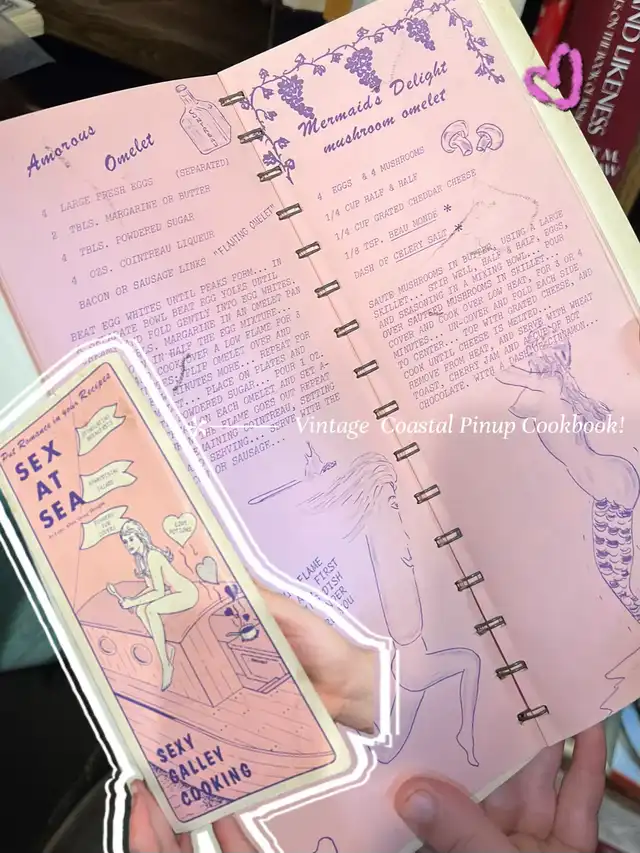 Amorous
Omelet
4 LARGE FRESH EGGS (SEPARATED)
2 TBLS. MARGARINE OR BUTTER
4 TBL. POWDERED SUGAR
4 OZS. COINTREAU LIQUEUR
BACON OR SAUSAGE LINKS "FLAMING OMELET"
BEAT EGG WHITES UNTIL PEAKS FORM... IN
BOWL BEAT EGG YOLKS UNTIL
FOLD GENTLY INTO EGG WHITES.
MARGARINE IN AN OMELET PAN
IN HALF THE EGG MIXTURE...
COOK OVER A LOW FLAME FOR 3
FLIP OMELET OVER AND
MINUTES MORE... REPEAT FOR
PLACE ON PLATES AND
POWDERED SUGAR... POUR 2 OZ.
EACH OMELET AND SET A-
FLAME GOES OUT REPEAT
COINTREAU, SETTING
SERVING... SERVE WITH THE
OR SAUSAGE...
FLAME
FIRST
DISH
YOU
Mermaids Delight
mushroom omelet
4 EGGS & 4 MUSHROOMS
1/4 CUP HALF & HALF
1/4 CUP GRATED CHEDDAR CHEESE
1/8 TSP. BEAU MONDE *
DASH OF CELERY SALT *
SAUTE MUSHROOMS IN BUTTER, USING A LARGE
SKILLET... STIR WELL, HALF & HALF, EGGS,
AND SEASONING IN A MIXING BOWL... POUR
OVER SAUTEED MUSHROOMS IN SKILLET...
COVER AND COOK OVER LOW HEAT, FOR 3 OR 4
MINUTES... UN-COVER AND FOLD EACH SIDE
TO CENTER... TOP WITH GRATED CHEESE, AND
COOK UNTIL CHEESE IS MELTED...
REMOVE FROM HEAT, AND SERVE WITH WHEAT
TOAST, CHERRY JAM AND A CUP OF HOT
CHOCOLATE, WITH A DASH OF CINNAMON...
Vintage Coastal Pinup Cookbook!
Put Romance in your Recipes
SEX
AT
SEA
LOVE
POTIONS
SEXY
GALLEY
COOKING
AND LIKENESS